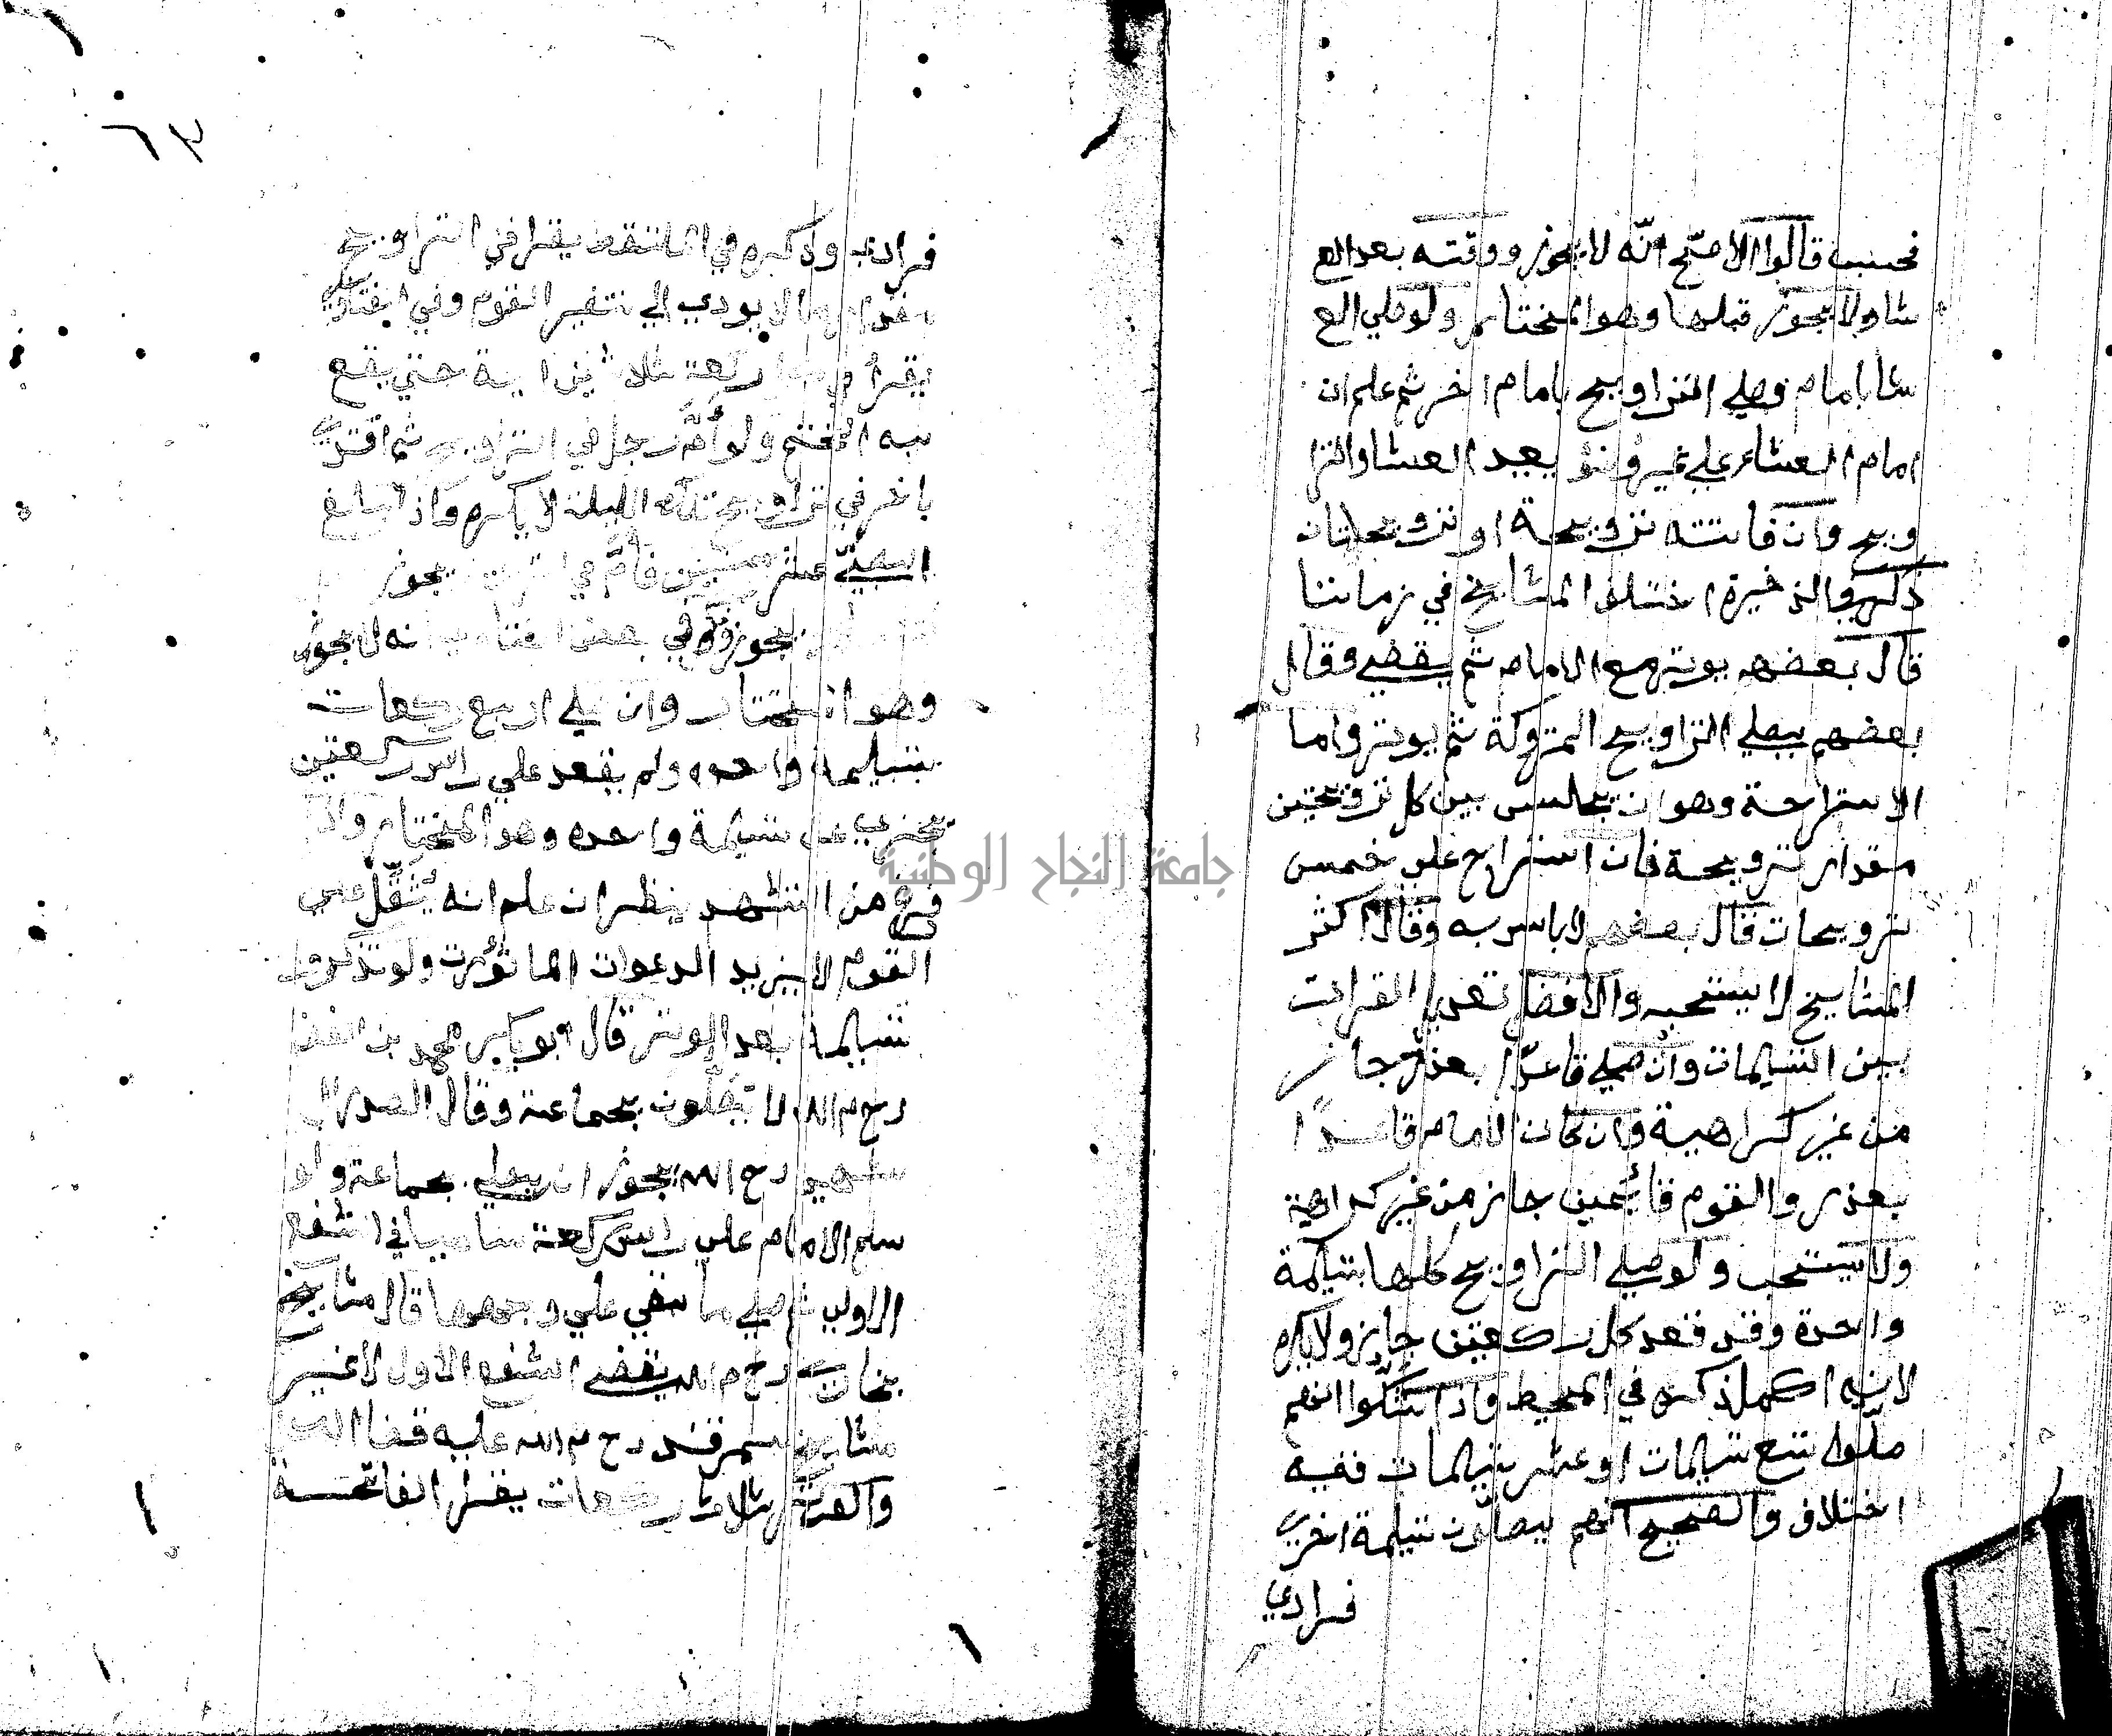 فحسب قالوا الاصح انّه لا يجوز ووقته بعد الع
شا ولا يجوز قبلها وهو المختار ولو صلي الع
شا بامام وصلي التراويح بامام اخر ثم علم ان
امام العشاء علي غير وضؤ يعيد العشا والترا
ويح وان فاتته ترويحة او ترويحتان
ذكر في الذخيرة اختلف المشايخ في زماننا
قال بعضهم يوتر مع الامام ثم يقضي وقال
بعضهم يصلي التراويح المتروكة ثم يوتر واما
الاستراحة وهو ان يجلس بين كل ترويحتين
مقدار ترويحة فان استراح علي خمس
ترويحات قال بعضهم لا باس به وقال اكثر
المشايخ لا يستحب والافضل تعديل القرات
بين التسليمات وان صلي قاعدًا بعذر جاز
من غير كراهية وان كان الامام قاعدًا
بعذر والقوم قائمين جاز من غير كراهية
ولا يستحب ولو صلي التراويح كلها بتسليمة
واحدة وقد قعد كل ركعتين جايز ولا يكره
لانه اكمل ذكره في المحيط واذا شكّوا انهم
صلّوا تسع تسليمات او عشر تسليمات ففيه
اختلاف والصحيح انهم يصلّون تسليمة اخري
فرادي
٦٣
فرادي وذكره في الملتقط يقرا في التراويح
مقدار ما لا يودي الي تنفير القوم وفي الفتاوي
يقرأ في ركعة ثلاثين اية حتي يقع
به الختم ولو أمّ رجل في التراويح ثم اقتدي
باخر في تراويح تلك الليلة لا يكره واذا بلغ
الصبيّ عشر سنين فأمّ في يجوز
يجوز وفي بعض الفتاوي انه لا يجوز
وهو المختار وان صلي اربع ركعات
بتسليمة واحده ولم يقعد علي راس ركعتين
يجزي عن تسليمة واحده وهو المختار واذا
فرغ من التشهد ينظر ان علم انه يُثقّل علي
القوم لا يزيد الدعوات الماثورت ولو تذكروا
تسليمة بعد الوتر قال ابو بكر محمد بن الفضل
رحمه الله لا يصلّون بجماعة وقال الصدر ال
شهيد رح الله يجوز ان يصلي بجماعة ولو
سلم الامام علي راس ركعة ساهيا في الشفع
الاولي ثم صلي ما بقي علي وجهها قال مشايخ
بخاري رحمه الله يقضي الشفع الاول لا غير
مشايخ سمرقند رحمه الله عليه قضا
والوتر ثلاث ركعات يقرا الفاتحة
جامعة النجاح الوطنية